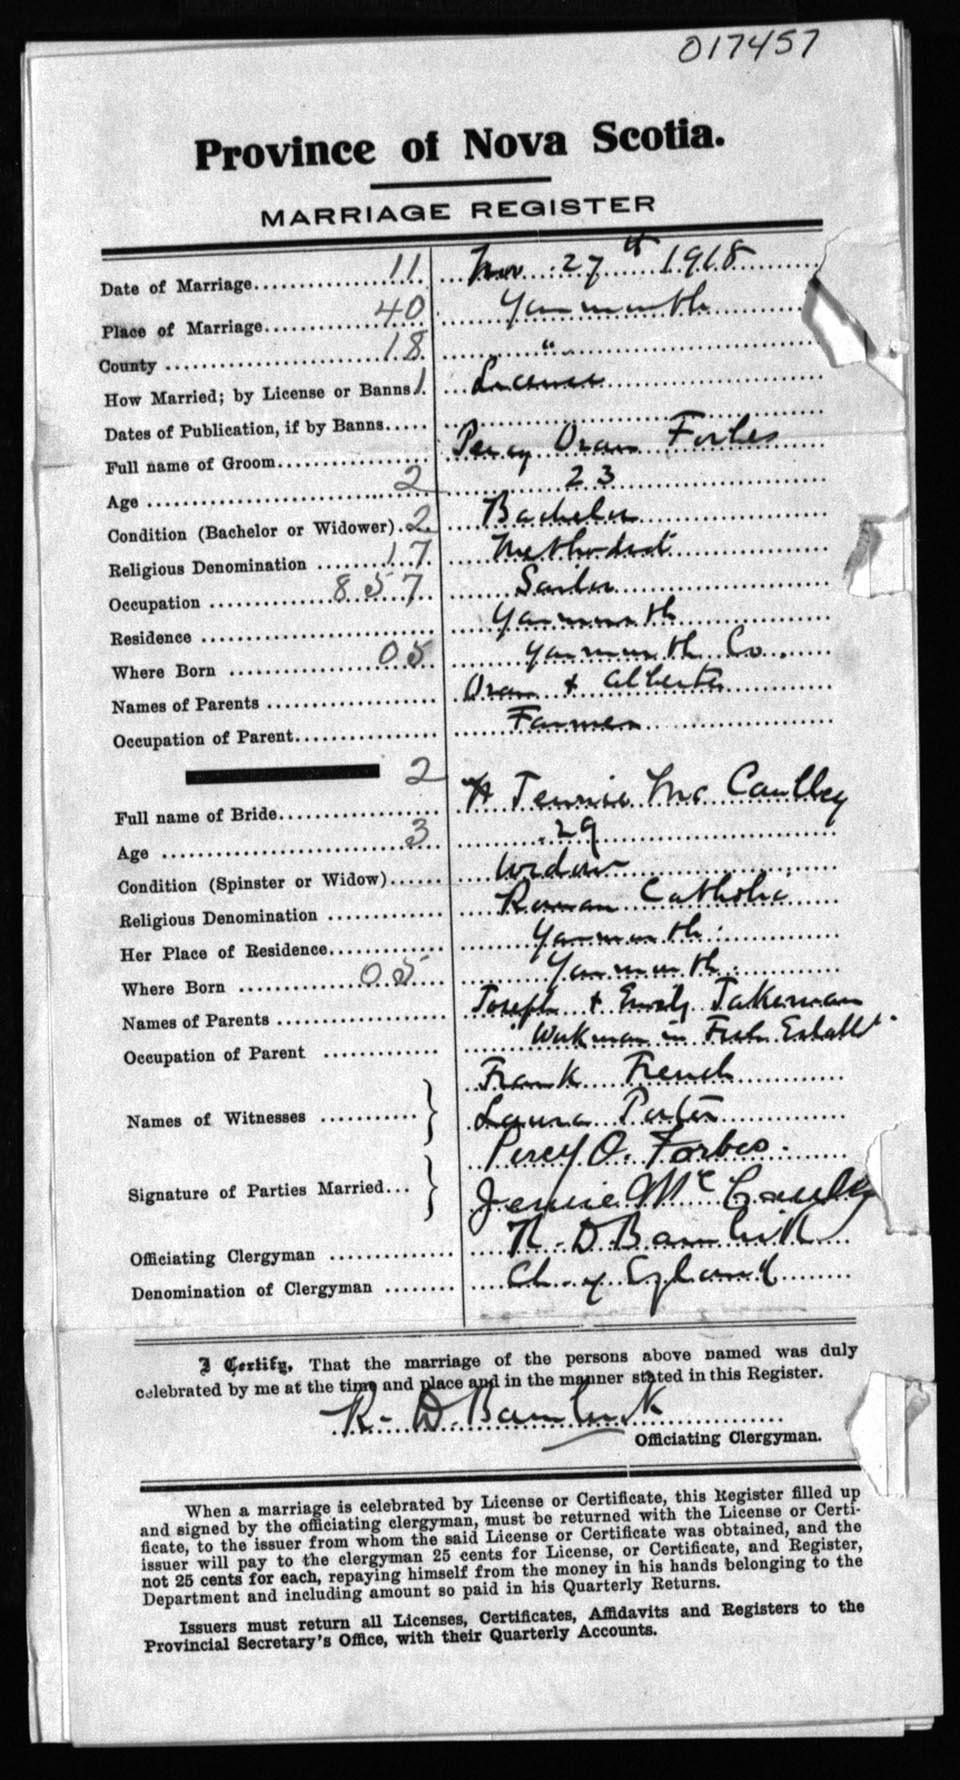 017457
Province of Nova Scotia.
MARRIAGE REGISTER
Date of Marriage 11 Nov 27th 1918
Place of Marriage 40 Yarmouth
County 18 "
How Married; by License or Banns 1 License
Dates of Publication, if by Banns
Full name of Groom Percy Oram Forbes
Age 2 23
Condition (Bachelor or Widower) 2 Bachelor
Religious Denomination 17 Methodist
Occupation 857 Sailor
Residence Yarmouth
Where Born 05 Yarmouth Co.
Names of Parents Oram & Alberta
Occupation of Parent Farmer
2
Full name of Bride Jennie Mc Caulley
Age 3 29
Condition (Spinster or Widow) Widow
Religious Denomination Roman Catholic
Her Place of Residence Yarmouth
Where Born 05 Yarmouth
Names of Parents Joseph & Emily
Occupation of Parent Workman in Fish Establt.
Names of Witnesses } Frank French
Laura Porter
Signature of Parties Married } Percy O. Forbes.
Jennie McCaulley
Officiating Clergyman R. D. Bambrick
Denomination of Clergyman Ch. of England
I Certify, That the marriage of the persons above named was duly
celebrated by me at the time and place and in the manner stated in this Register.
R. D. Bambrick
Officiating Clergyman.
When a marriage is celebrated by License or Certificate, this Register filled up
and signed by the officiating clergyman, must be returned with the License or Certi-
ficate, to the issuer from whom the said License or Certificate was obtained, and the
issuer will pay to the clergyman 25 cents for License, or Certificate, and Register,
not 25 cents for each, repaying himself from the money in his hands belonging to the
Department and including amount so paid in his Quarterly Returns.
Issuers must return all Licenses, Certificates, Affidavits and Registers to the
Provincial Secretary's Office, with their Quarterly Accounts.